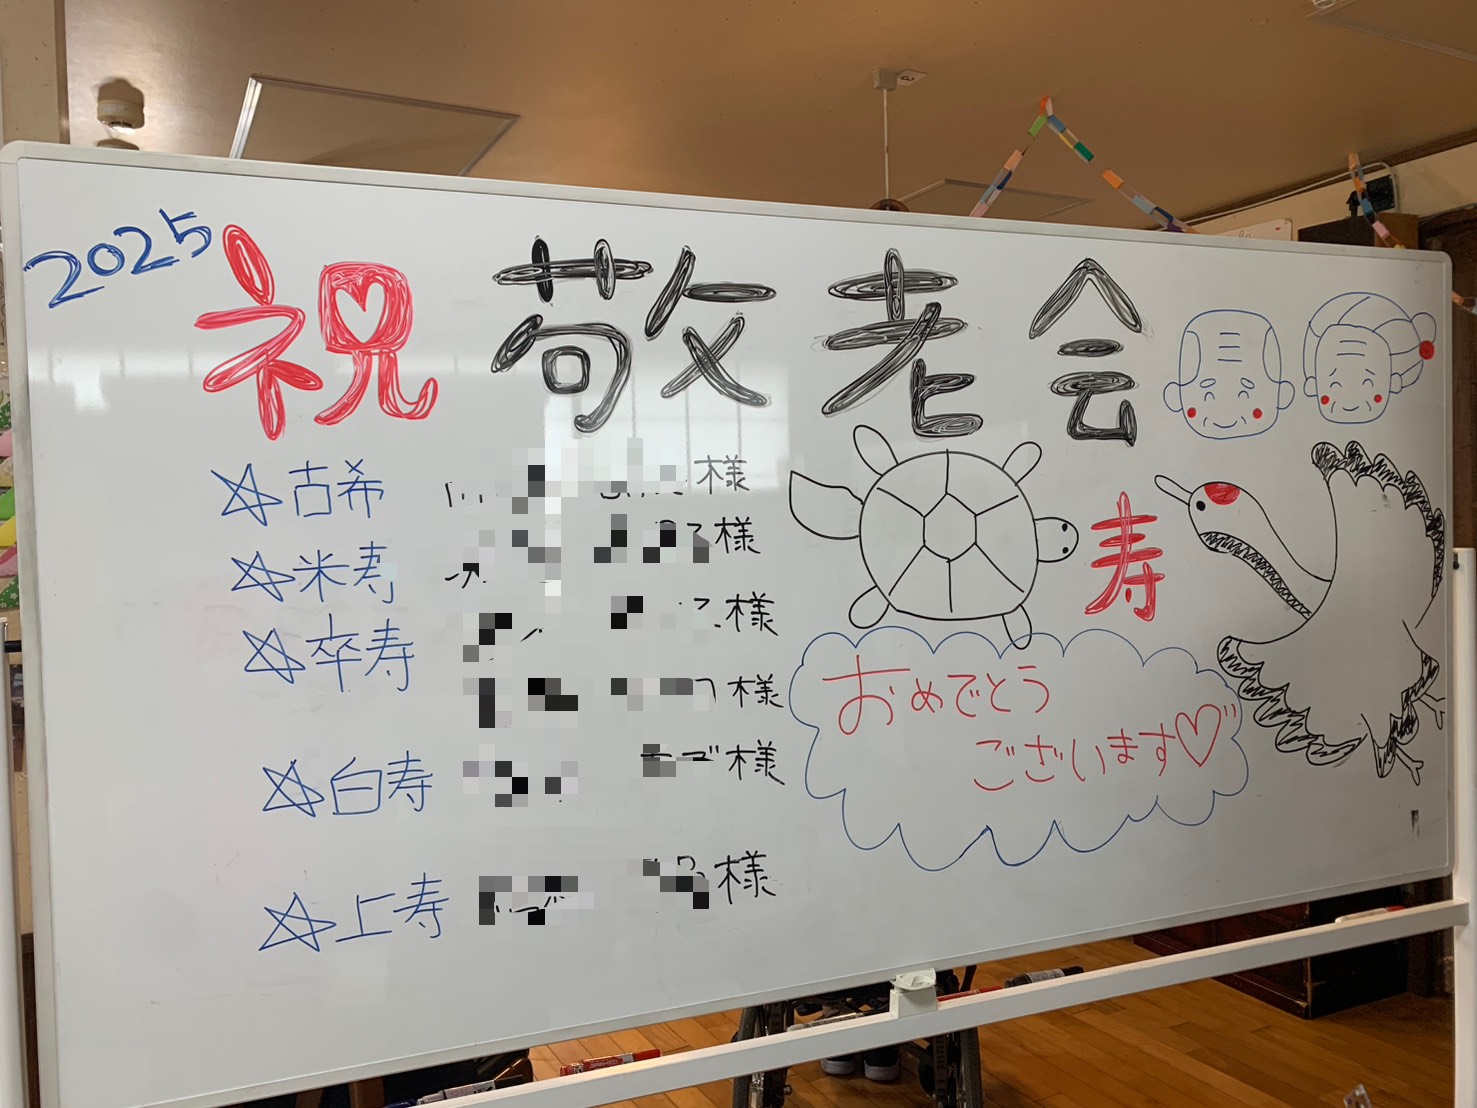 2025
祝 敬老会
☆古希 様
☆米寿 様
☆卒寿 様
様
☆白寿 様
☆上寿 様
寿
おめでとう
ございます♡